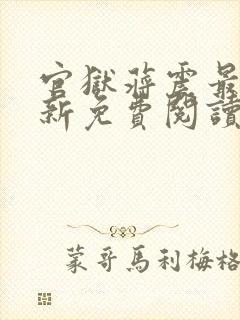 官獄蔣震最
新免費閱讀
蒙哥馬利梅格